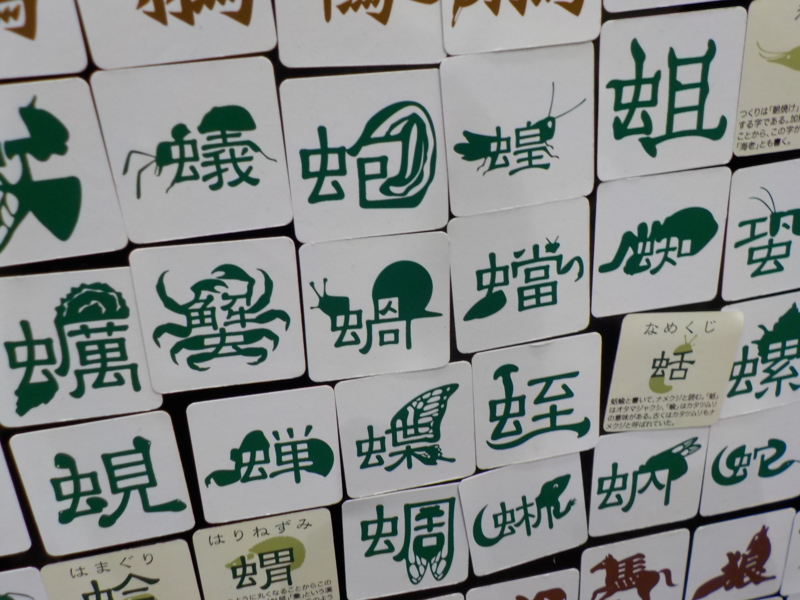 蟻
蚫
蝗
蛆
つくりは「朝焼け」
する字である。加
ことから、この字が
「海老」とも書く。
蠣
蟹
蝸
蟷
蜘
蛩
蜆
蝉
蝶
蛭
なめくじ
蛞
蛞蝓と書いて、ナメクジと読む。「蛞」
はオタマジャクシ、「蝓」はカタツムリ
の意味がある。古くはカタツムリもナ
メクジと呼ばれていた。
螺
はまぐり
蛤
はりねずみ
蝟
蜩
蜥
蚋
蛇
馬
狼